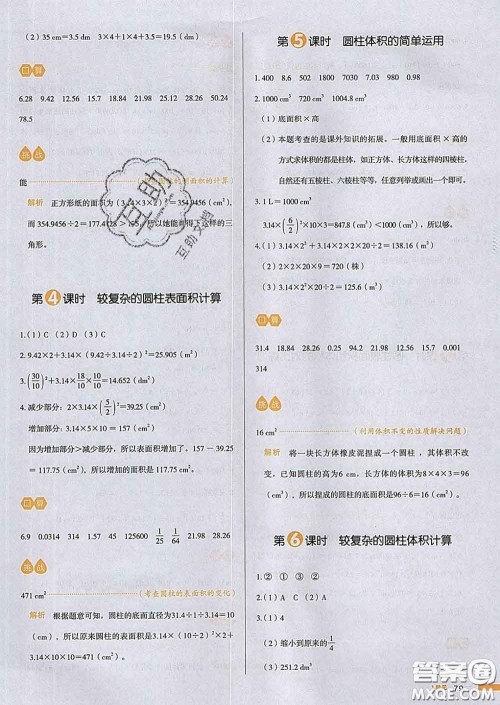 (2) 35 cm=3.5 dm　3×4+1×4=3.4(dm)
口算
6.28　9.42　12.56　15.7　18.84　21.98　25.12　28.26　50.24
78.5
挑战
能
解析　正方形纸的面积为(3.14×3×2)²=354.9456(cm²),
而354.9456÷2=177.4728>
所以她能
三
角形。
第4课时　较复杂的圆柱表面积计算
1.(1)C　(2)D　(3)C
2. 9.42×2+3.14×(9.42÷3.14÷2)²=25.905(m²)
3. (30/10)²+3.14×18/10×10/10=14.652(dm²)
4. 减少部分：2×3.14×(5/2)²=39.25(cm²)
增加部分：3.14×5×10=157(cm²)
因为增加部分>减少部分，所以增加了。157-39.25
=117.75(cm²)，所以增加了117.75 cm²。
口算
6.9　0.0314　314　1.57　45　125600　1/25　1/64　21.98　28.26
挑战
471 cm²
(考查圆柱的表面积的变化)
解析　根据题意可知，圆柱的底面直径为31.4÷1÷3.14=10
(cm)，所以原来圆柱的表面积为3.14×(10÷2)²×2+
3.14×10×10=471(cm²)。
第5课时　圆柱体积的简单运用
1. 400　8.6　502　1800　7030　7.03　980　0.98
2. 1000 cm³　720 cm³　1004.8 cm³
(1)底面积×高
(2)本题考查的是课外知识的拓展。一般用底面积×高的
方式求体积的都是柱体，如正方体、长方体这样的四棱柱，
当然还有五棱柱、六棱柱等等，任意列举或画出一种即可。
3. 1 L=1000 cm³
3.14×(6/2)²×10×3=847.8(cm³)<1000 cm³，所以够。
4. (1)3.14×2×20+3.14×2×2÷2×2=138.16(m²)
(2)36×20=720(株)
(3)3.14×2²×20÷2=125.6(m³)
口算
31.4　18.84　28.26　0.25　94.2　21.98　12.56　15.7　1.00
314
挑战
16 cm²
(利用体积不变的性质解决问题)
解析　将一块长方体橡皮泥捏成一个圆柱，其体积不改
变。已知圆柱的高为6 cm，长方体的体积为8×4×3=96
(cm³)，所以捏成的圆柱的底面积是96÷6=16(cm²)。
第6课时　较复杂的圆柱体积计算
1.②　①　③　②
2.(1)A　C　(2)B
3.(1)4
(2)缩小到原来的1/4
(3)251.2 dm³
互助
互助文档
答案圈
MXQE.COM